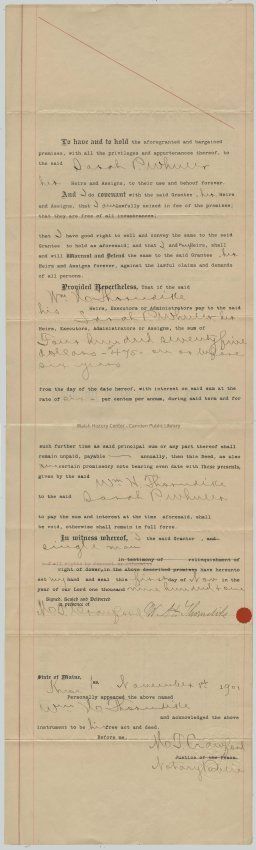 To have and to hold the aforegranted and bargained
premises, with all the privileges and appurtenances thereof, to
the said Sarah P Wheeler
her Heirs and Assigns, to their use and behoof forever.
And I do covenant with the said Grantee, her Heirs
and Assigns, that I am lawfully seized in fee of the premises;
that they are free of all incumbrances;
that I have good right to sell and convey the same to the said
Grantee to hold as aforesaid; and that I and my Heirs, shall
and will Warrant and Defend the same to the said Grantee, her
Heirs and Assigns forever, against the lawful claims and demands
of all persons.
Provided Nevertheless, That if the said
Wm H Thorndike
his Heirs, Executors or Administrators pay to the said
Sarah P Wheeler her
Heirs, Executors, Administrators or Assigns, the sum of
Four hundred seventy five
dollars - 475 - on or before
six years
from the day of the date hereof, with interest on said sum at the
rate of six per centum per annum, during said term and for
Walsh History Center - Camden Public Library
such further time as said principal sum or any part thereof shall
remain unpaid, payable annually, then this Deed, as also
certain promissory note bearing even date with These presents,
given by the said
Wm H Thorndike
to the said Sarah P Wheeler
to pay the sum and interest at the time aforesaid, shall
be void, otherwise shall remain in full force.
In witness whereof, I the said Grantor, and
single man
in testimony of relinquishment of
right of dower, in the above described premises have hereunto
set my hand and seal this first day of Nov in the
year of our Lord one thousand nine hundred and one
Signed, Sealed and Delivered
in presence of
M. T. Crawford W. H. Thorndike
State of Maine.
Knox ss. November 1st 1901
Personally appeared the above named
Wm H Thorndike
and acknowledged the above
instrument to be his free act and deed.
Before me,
M. T. Crawford
Justice of the Peace.
Notary Public